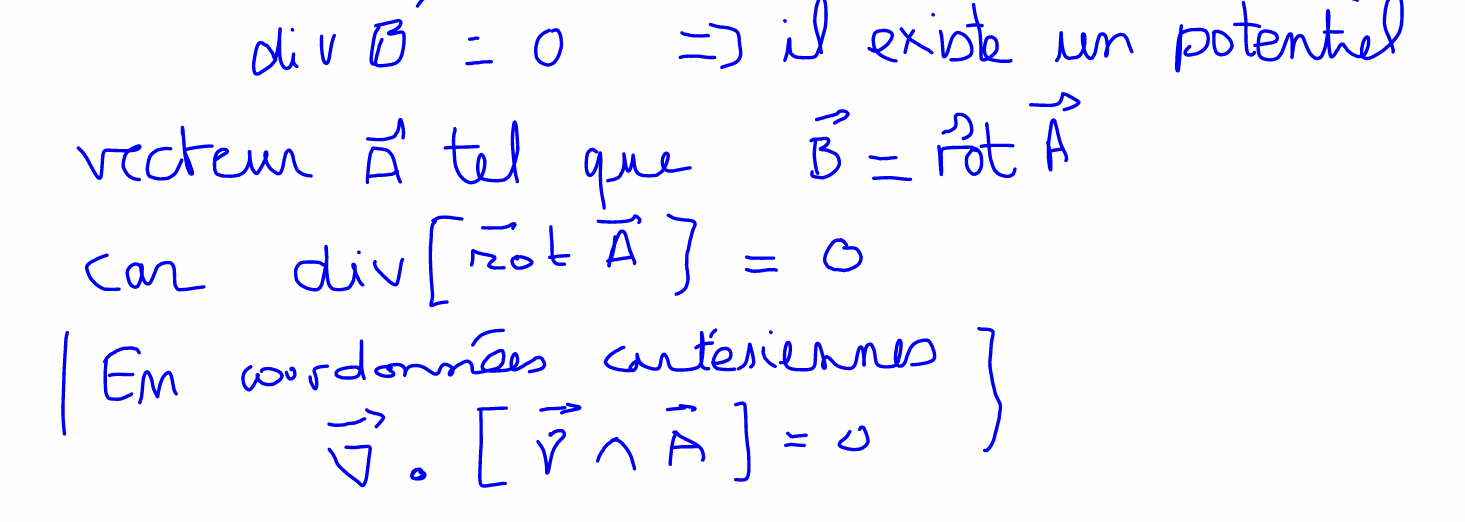 div B⃗ = 0 => il existe un potentiel
vecteur A⃗ tel que B⃗ = r⃗ot A⃗
car div [r⃗ot A⃗] = 0
| En coordonnées cartésiennes }
∇⃗ . [∇⃗ ∧ A⃗] = 0